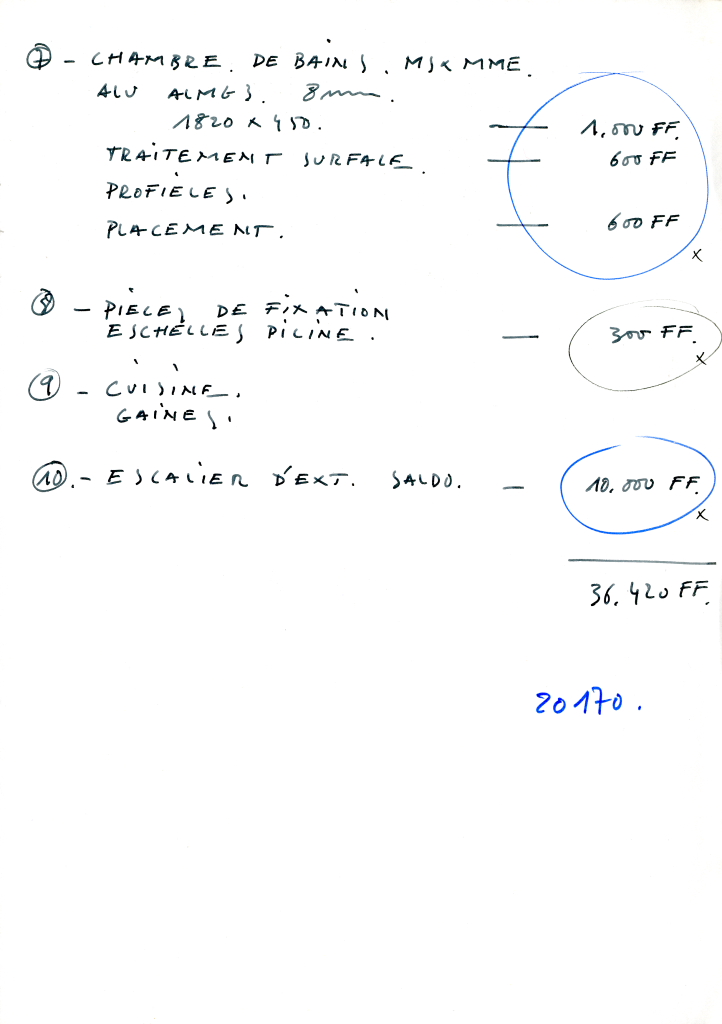 7 - CHAMBRE. DE BAINS. MS & MME.
ALU ALMG3. 8mm.
1820 x 450. — 1,000 FF.
TRAITEMENT SURFACE. — 600 FF
PROFIÈLES.
PLACEMENT. — 600 FF
x
8 - PIÈCES DE FIXATION
ESCHELLES PICINE. — 300 FF.
x
9 - CUISINE.
GAINES.
10.- ESCALIER D'EXT. SALDO. — 10.000 FF.
x
36.420 FF.
20170.